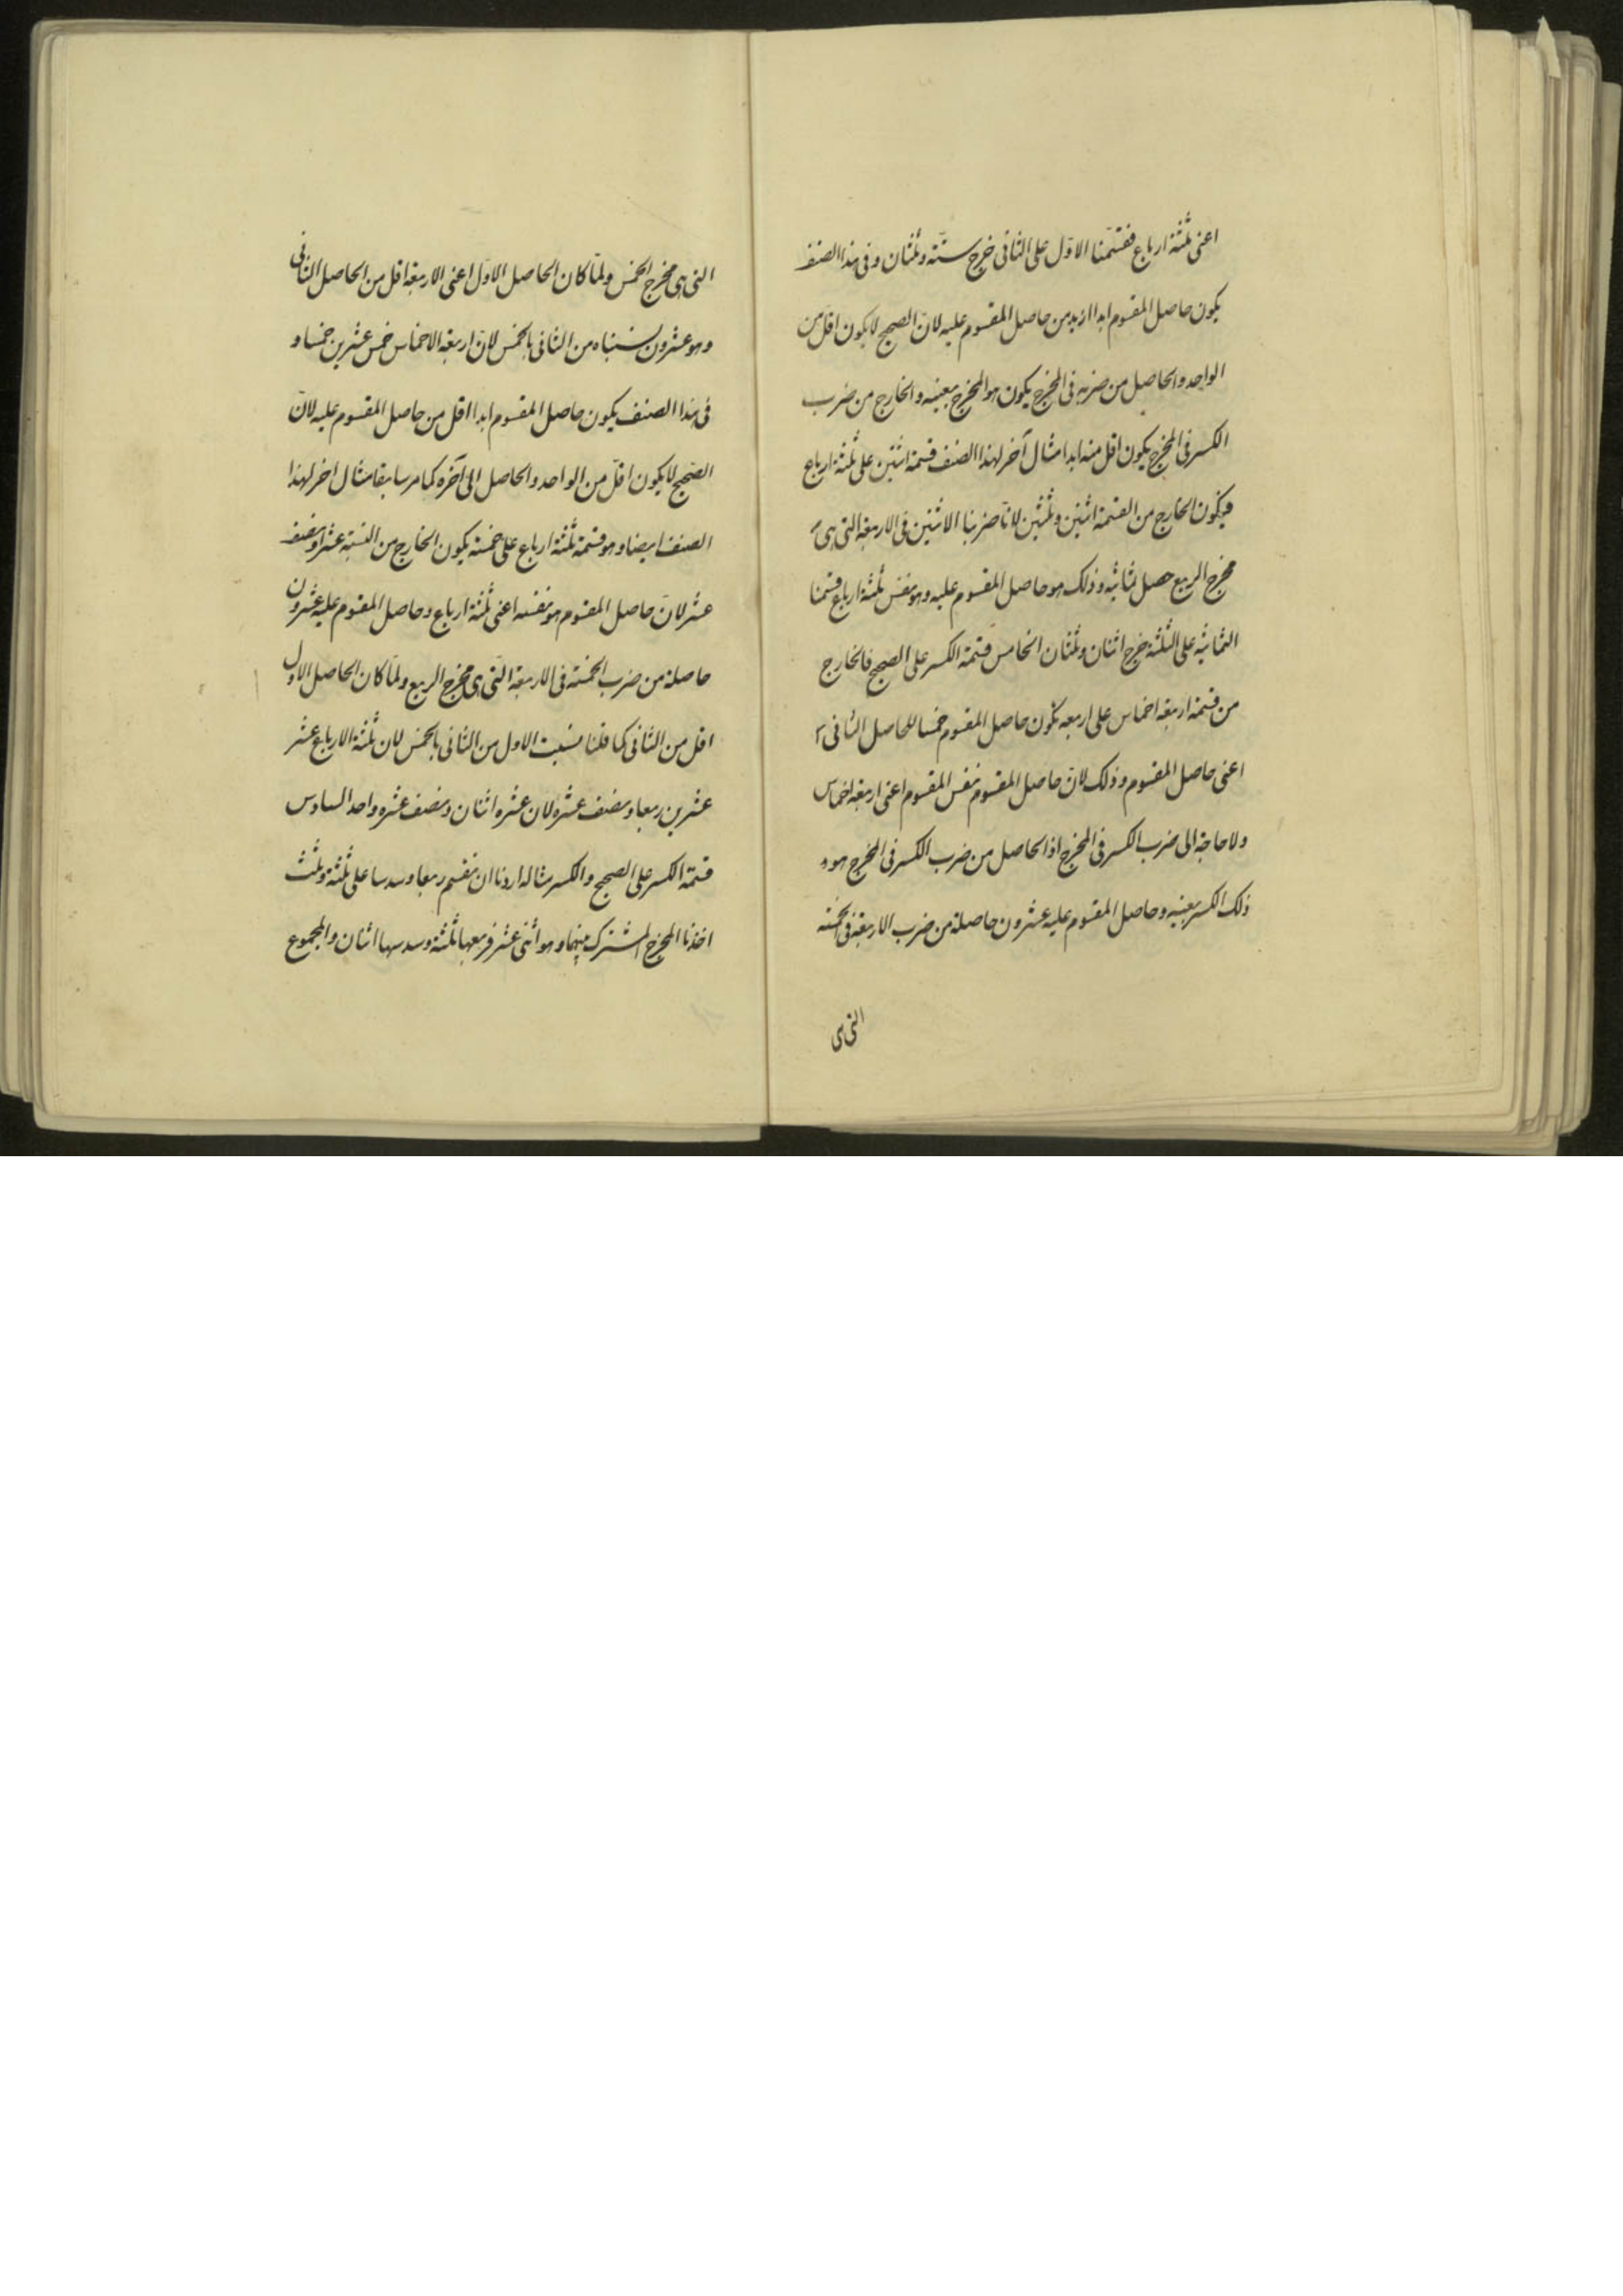 اعنى ثلثة ارباع فقسّمنا الاوّل على الثانى خرج ستّة وثلثان وفى هذا الصنف
يكون حاصل المقسوم ابدا ازيد من حاصل المقسوم عليه لانّ الصحيح لا يكون اقلّ من
الواحد والحاصل من ضربه فى المخرج يكون هو المخرج بعينه والخارج من ضرب
الكسر فى المخرج يكون اقل منه ابدا مثال آخر لهذا الصنف قسمة اثنين على ثلثة ارباع
فيكون الخارج من القسمة اثنين وثلثين لانّا ضربنا الاثنين فى الاربعة التى هى
مخرج الربع حصل ثمانية وذلك هو حاصل المقسوم عليه وهو نفس ثلثة ارباع قسمنا
الثمانية على الثلثة خرج اثنان وثلثان الخامس قسمة الكسر على الصحيح فالخارج
من قسمة اربعة اخماس على اربعه يكون حاصل المقسوم خمسا للحاصل الثانى
اعنى حاصل المقسوم وذلك لانّ حاصل المقسوم نفس المقسوم اعنى اربعة اخماس
ولا حاجة الى ضرب الكسر فى المخرج اذ الحاصل من ضرب الكسر فى المخرج هو
ذلك الكسر بعينه وحاصل المقسوم عليه عشرون حاصلة من ضرب الاربعة فى الخمسة
التى هى
التى هى مخرج الخمس ولمّا كان الحاصل الاوّل اعنى الاربعة اقل من الحاصل الثانى
وهو عشرون نسبناه من الثانى بالخمس لانّ اربعة الاخماس خمس عشرين خمسا و
فى هذا الصنف يكون حاصل المقسوم ابدا اقل من حاصل المقسوم عليه لانّ
الصّحيح لا يكون اقلّ من الواحد والحاصل الى آخره كما مر سابقا مثال اخر لهذا
الصنف ايضا وهو قسمة ثلثة ارباع على خمسة يكون الخارج من النسبة عشرا ونصف
عشر لانّ حاصل المقسوم هو نفسه اعنى ثلثة ارباع وحاصل المقسوم عليه عشرون
حاصلة من ضرب الخمسة فى الاربعة التّى هى مخرج الربع ولمّا كان الحاصل الاول
اقل من الثانى كما قلنا نسبت الاول من الثانى بالخمس لان ثلثة الارباع عشر
عشرين ربعا ونصف عشره لان عشره اثنان ونصف عشره واحد السادس
قسمة الكسر على الصحيح والكسر مثاله اردنا ان نقسم ربعا وسدسا على ثلثة وثلث
اخذنا المخرج المشترك بينهما وهو اثنى عشر فربعها ثلثة وسدسها اثنان والمجموع